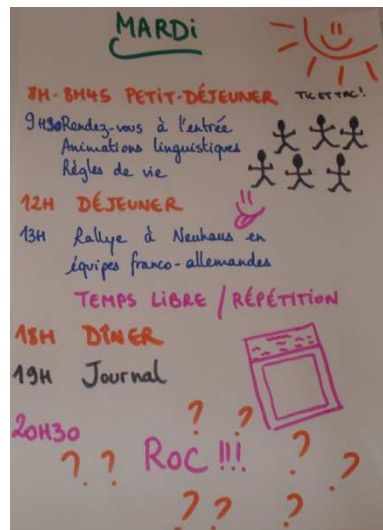 MARDi
8H-8H45 PETIT-DÉJEUNER TIC ET TAC!
9H30 Rendez-vous à l'entrée
Animations linguistiques
Règles de vie
12H DÉJEUNER
13H Rallye à Neuhaus en
équipes franco-allemandes
TEMPS LIBRE / RÉPÉTITION
18H DÎNER
19H Journal
? ?
20H30 ROC !!! ?
? ? ?
? ? ?